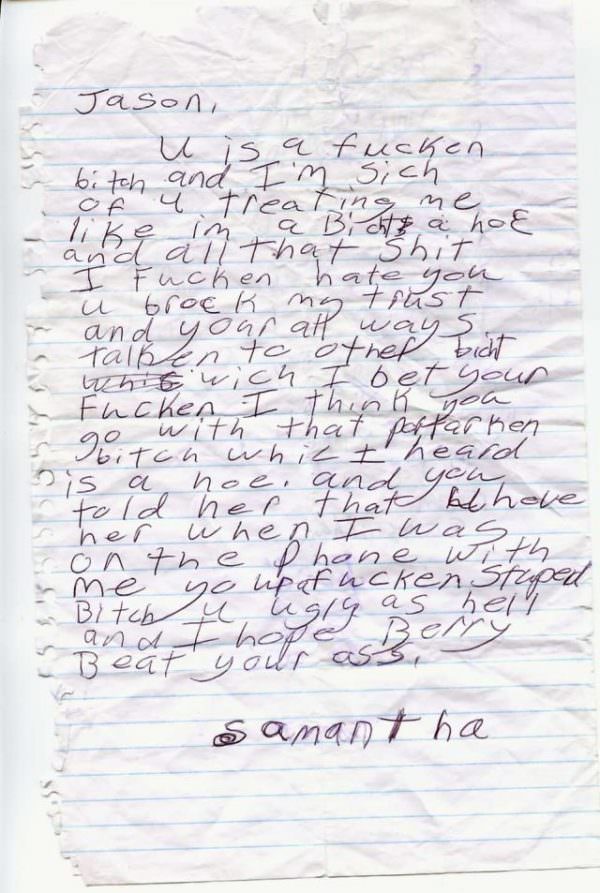 Jason,
U is a fucken
bitch and I'm sich
of u treating me
like im a Bicht a hoE
and all that Shit
I Fucken hate you
u broek my trust
and your all ways
talken to other bicht
wich I bet your
Fucken I think you
go with that
bitch which I heard
is a hoe. and you
told her that love
her when I was
on the Phone with
me you a fucken Stuped
Bitch u ugly as hell
and I hope Berry
Beat your ass.
Samantha